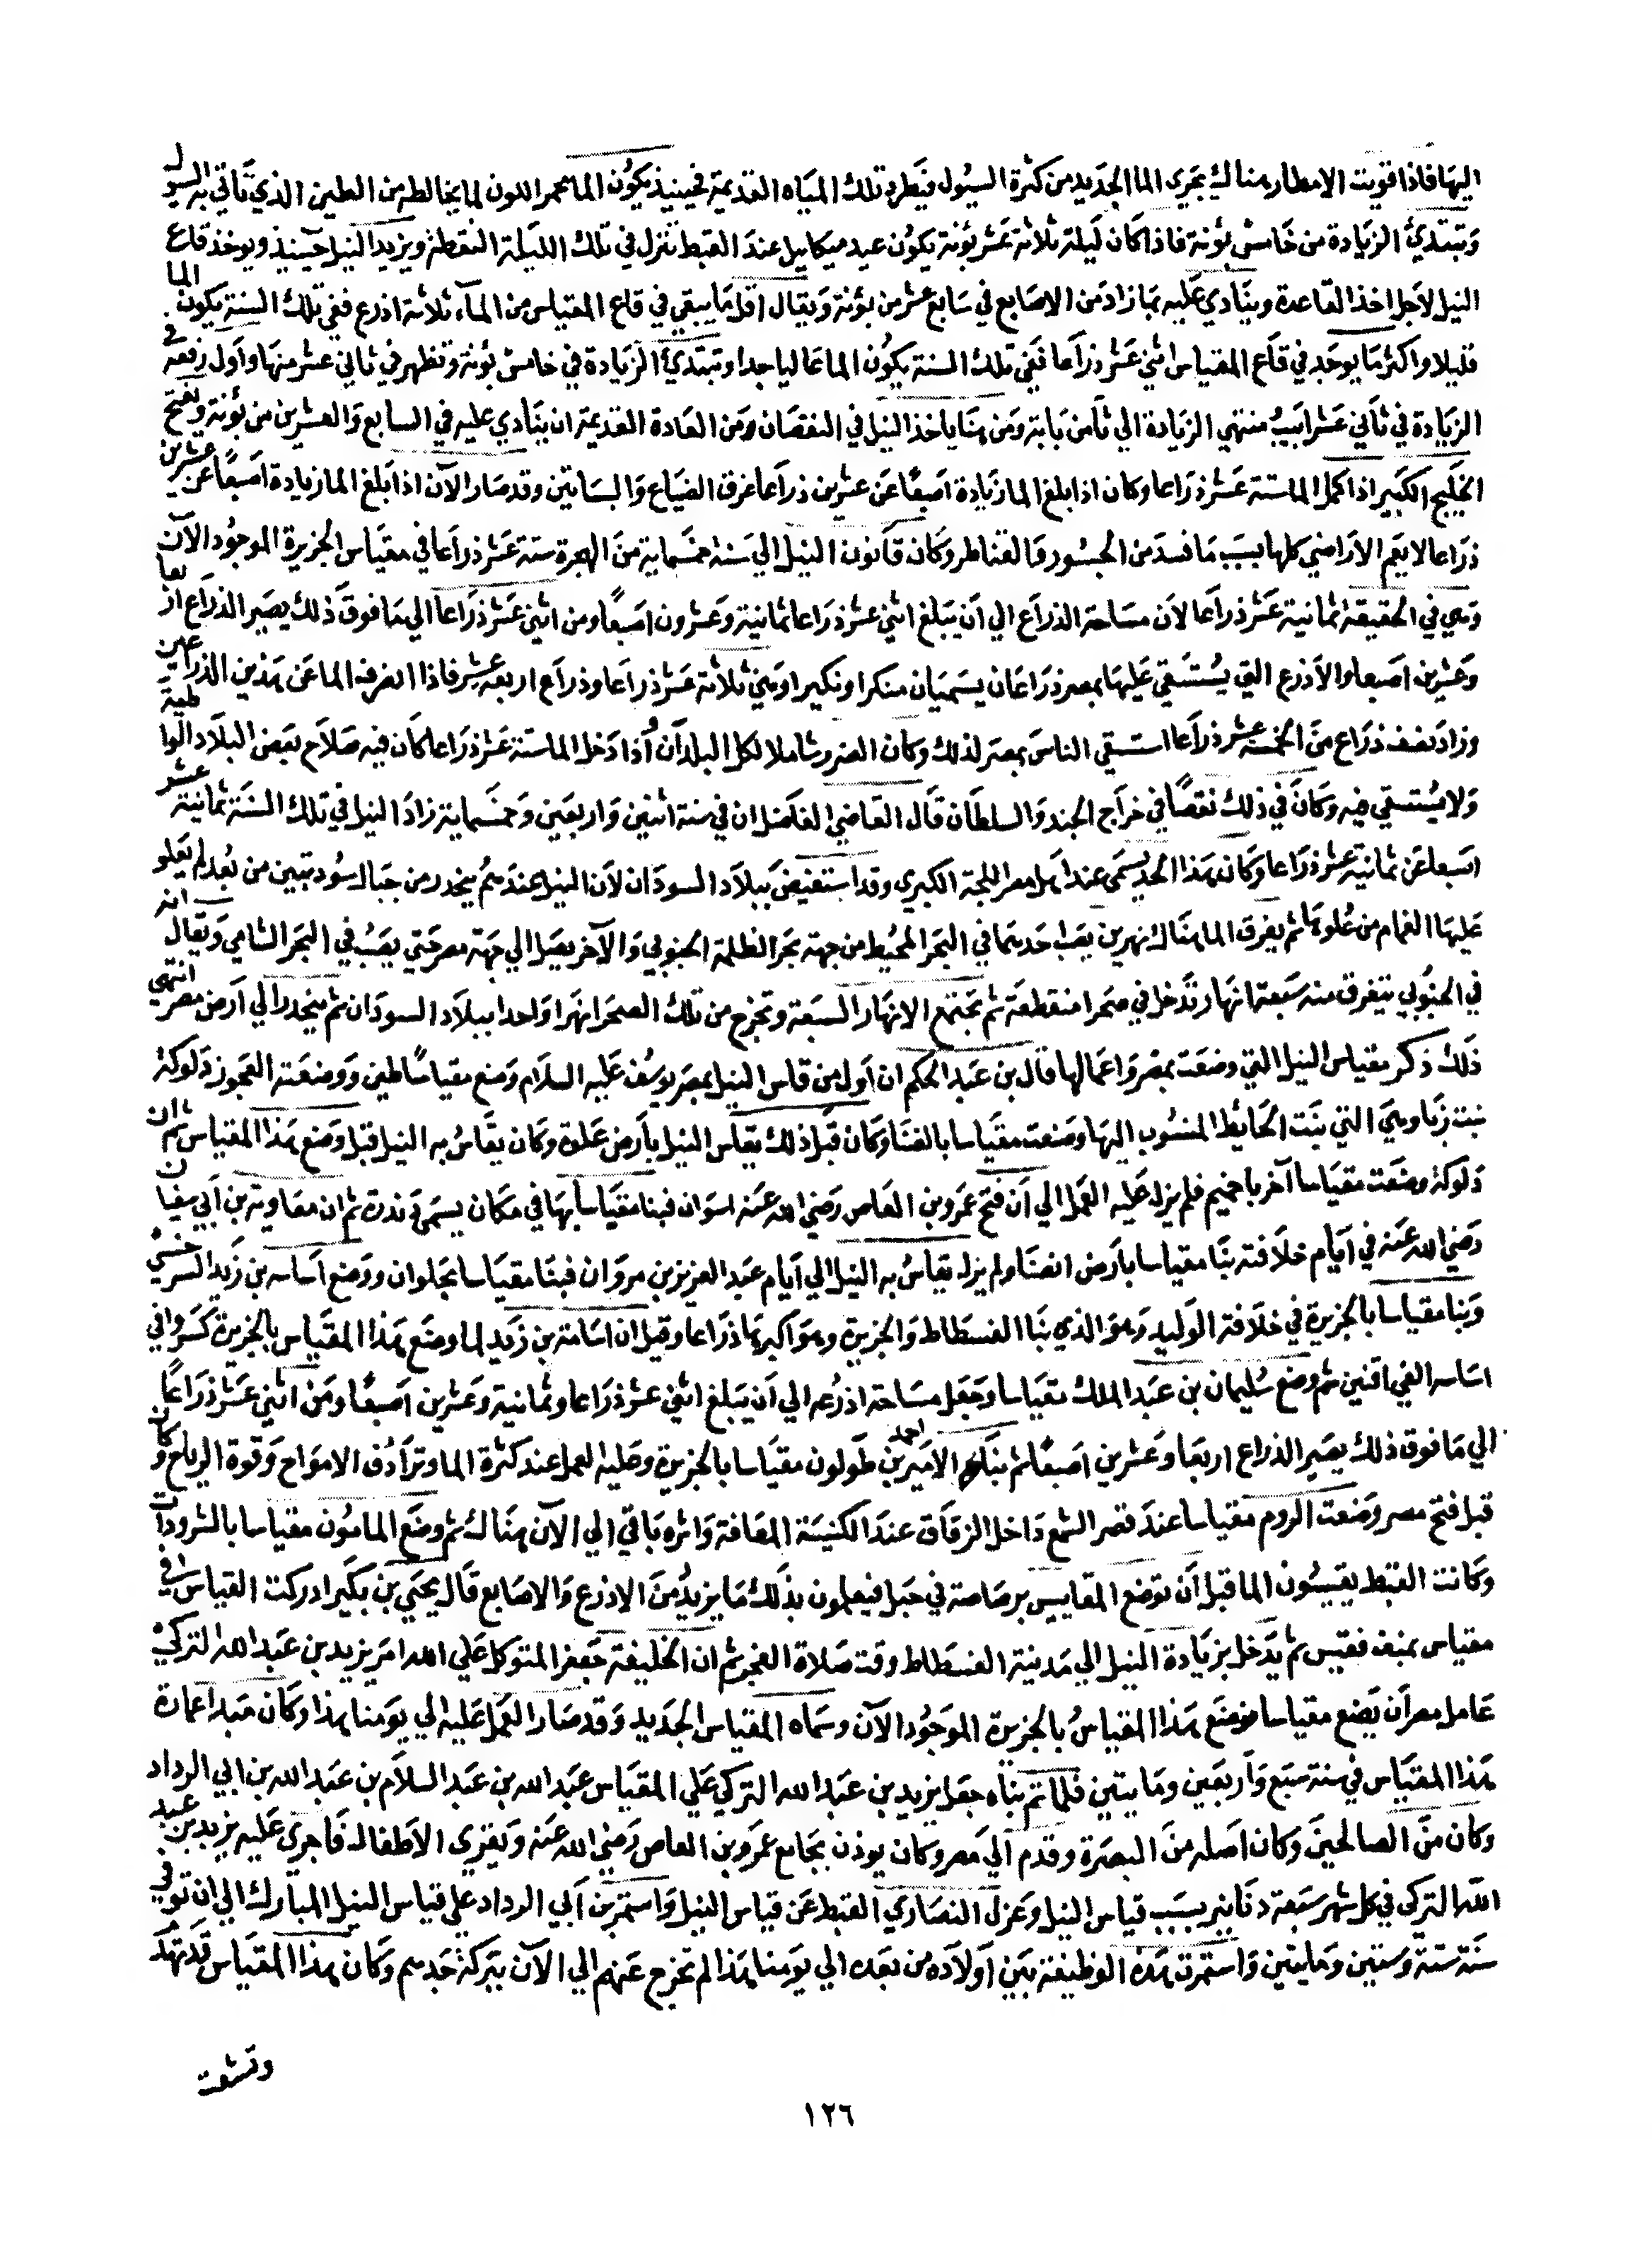 اليها فاذا قويت الامطار هناك يجري الما الجديد من كثرة السيول فيطرد تلك المياه القديمة فحينيذ يكون الما محمر اللون لما يخالطه من الطين الذي تاتي به السيول
وتبتدئ الزيادة من خامس بؤنة فاذا كان ليلة ثلاثة عشر بؤنة يكون عيد ميكاييل عند القبط تنزل في تلك الليلة النقطة ويزيد النيل حينيذ ويوخذ قاع
النيل لاجل اخذ القاعدة وينادي عليه بما زاد من الاصابع في سابع عشر من بؤنة ويقال اقل ما يبقي في قاع المقياس من المآء ثلاثة اذرع ففي تلك السنة يكون الما
قليلا واكثر ما يوجد في قاع المقياس اثني عشر ذراعا ففي تلك السنة يكون الما عاليا جدا وتبتدئ الزيادة في خامس بؤنة وتظهر في ثاني عشر منها واول دفعة في
الزيادة في ثاني عشر ابيب منتهي الزيادة الي ثامن بابة ومن هنا ياخذ النيل في النقصان ومن العادة القديمة ان ينادي عليه في السابع والعشرين من بؤنة ويفتح
الخليج الكبير اذا كمل الما ستة عشر ذراعا وكان اذا بلغ الما زيادة اصبعا عن عشرين ذراعا غرق الضياع والبساتين وقد صار الآن اذا بلغ الما زيادة اصبعا عن عشرين
ذراعا لا يعم الاراضي كلها بسبب ما فسد من الجسور والقناطر وكان قانون النيل الي سنة خمسماية من الهجرة ستة عشر ذراعا في مقياس الجزيرة الموجود الآن
وهي في الحقيقة ثمانية عشر ذراعا لان مساحة الذراع الي ان يبلغ اثني عشر ذراعا ثمانية وعشرون اصبعا ومن اثني عشر ذراعا الي ما فوق ذلك يصير الذراع اربعا
وعشرين اصبعا والاذرع التي يستسقي عليها بمصر ذراعان يسميان منكرا ونكيرا وهي ثلاثة عشر ذراعا وذراع اربعة عشر فاذا انصرف الما عن هذين الذراعين
وزاد نصف ذراع من الخمسة عشر ذراعا استسقي الناس بمصر لذلك وكان الضرر شاملا لكل البلدان اذا دخل الما ستة عشر ذراعا كان فيه صلاح بعض البلاد الواطية
ولا يستسقي فيه وكان في ذلك نقصا في خراج الجند والسلطان قال القاضي الفاضل ان في سنة اثنين واربعين وخمسماية زاد النيل في تلك السنة ثمانية عشر
اصبعا عن ثمانية عشر ذراعا وكان هذا الحد يسمى عند اهل مصر اللجة الكبري وقد استفيض ببلاد السودان لان النيل عندهم ينحدر من جبال سود تبين من بعد لم يعلو
عليها الغمام من علوها ثم يفرق الما هناك نهرين يصب احدهما في البحر المحيط من جهة بحر الظلمة الجنوبي والآخر يصل الي جهة مصر حتي يصب في البحر الشامي ويقال انه
في الجنوبي يتفرق منه سبعة انهار تدخل في صحرا منقطعة ثم تجتمع الانهار السبعة وتخرج من تلك الصحرا نهرا واحدا ببلاد السودان ثم ينحدر الي ارض مصر انتهي
ذلك ذكر مقياس النيل التي وضعت بمصر واعمالها قال بن عبد الحكم ان اول من قاس النيل بمصر يوسف عليه السلام وضع مقياسا ووضعته العجوز دلوكة
بنت زبا وهي التي بنت الحائط المنسوب اليها وضعت مقياسا بانصنا وكان قبل ذلك يقاس النيل بارض علوة وكان يقاس به النيل قبل وضع هذا المقياس ثم ان
دلوكة وضعت مقياسا آخر باخميم فلم يزل عليه العمل الي ان فتح عمرو بن العاص رضي الله عنه اسوان فبنا مقياسا بها في مكان يسمى دندرة ثم ان معاوية بن ابي سفيان
رضي الله عنه في ايام خلافته بنا مقياسا بارض انصنا ولم يزل يقاس به النيل الي ايام عبد العزيز بن مروان فبنا مقياسا بحلوان ووضع اساسه بن زيد
وبنا مقياسا بالجزيرة في خلافة الوليد وهو الذي بنا الفسطاط والجزيرة وهو اكبرها ذراعا وقيل ان اسامة بن زيد لما وضع هذا المقياس بالجزيرة كسر وافي
اساسه الفي اقنين ثم وضع سليمان بن عبد الملك مقياسا وجعل مساحة اذرعه الي ان يبلغ اثني عشر ذراعا وثمانية وعشرين اصبعا ومن اثني عشر ذراعا
الي ما فوق ذلك يصير الذراع اربعا وعشرين اصبعا ثم بنا الامير احمد بن طولون مقياسا بالجزيرة وعليه العمل عند كثرة الما وترادف الامواج وقوة الرياح وكان
قبل فتح مصر وضعت الروم مقياسا عند قصر الشمع داخل الزقاق عند الكنيسة المعلقة واثره باقي الي الآن هناك ثم وضع المامون مقياسا بالشرودات
وكانت القبط يقيسون الما قبل ان توضع المقاييس برصاصة في حبل فيعلمون بذلك ما يزيد من الاذرع والاصابع قال يحيي بن بكير ادركت القياس في
مقياس بمنف فقيس ثم يدخل بزيادة النيل الي مدينة الفسطاط وقت صلاة الفجر ثم ان الخليفة جعفر المتوكل علي الله امر يزيد بن عبد الله التركي
عامل مصر ان يضع مقياسا فوضع هذا المقياس بالجزيرة الموجود الآن وسماه المقياس الجديد وقد صار العمل عليه الي يومنا هذا وكان مبدا عمارة
هذا المقياس في سنة سبع واربعين ومايتين فلما تم بناه جعل يزيد بن عبد الله التركي علي المقياس عبد الله بن عبد السلام بن عبد الله بن ابي الرداد
وكان من الصالحين وكان اصله من البصرة وقدم الي مصر وكان يوذن بجامع عمرو بن العاص رضي الله عنه ويقري الاطفال فاجري عليه يزيد بن عبد
الله التركي في كل شهر سبعة دنانير بسبب قياس النيل وعزل النصاري القبط عن قياس النيل واستمر بن ابي الرداد علي قياس النيل المبارك الي ان توفي في
سنة ستة وستين ومايتين واستمرت هذه الوظيفة بين اولاده من بعده الي يومنا هذا لم تخرج عنهم الي الآن ببركة جدهم وكان هذا المقياس قد تهد
١٢٦